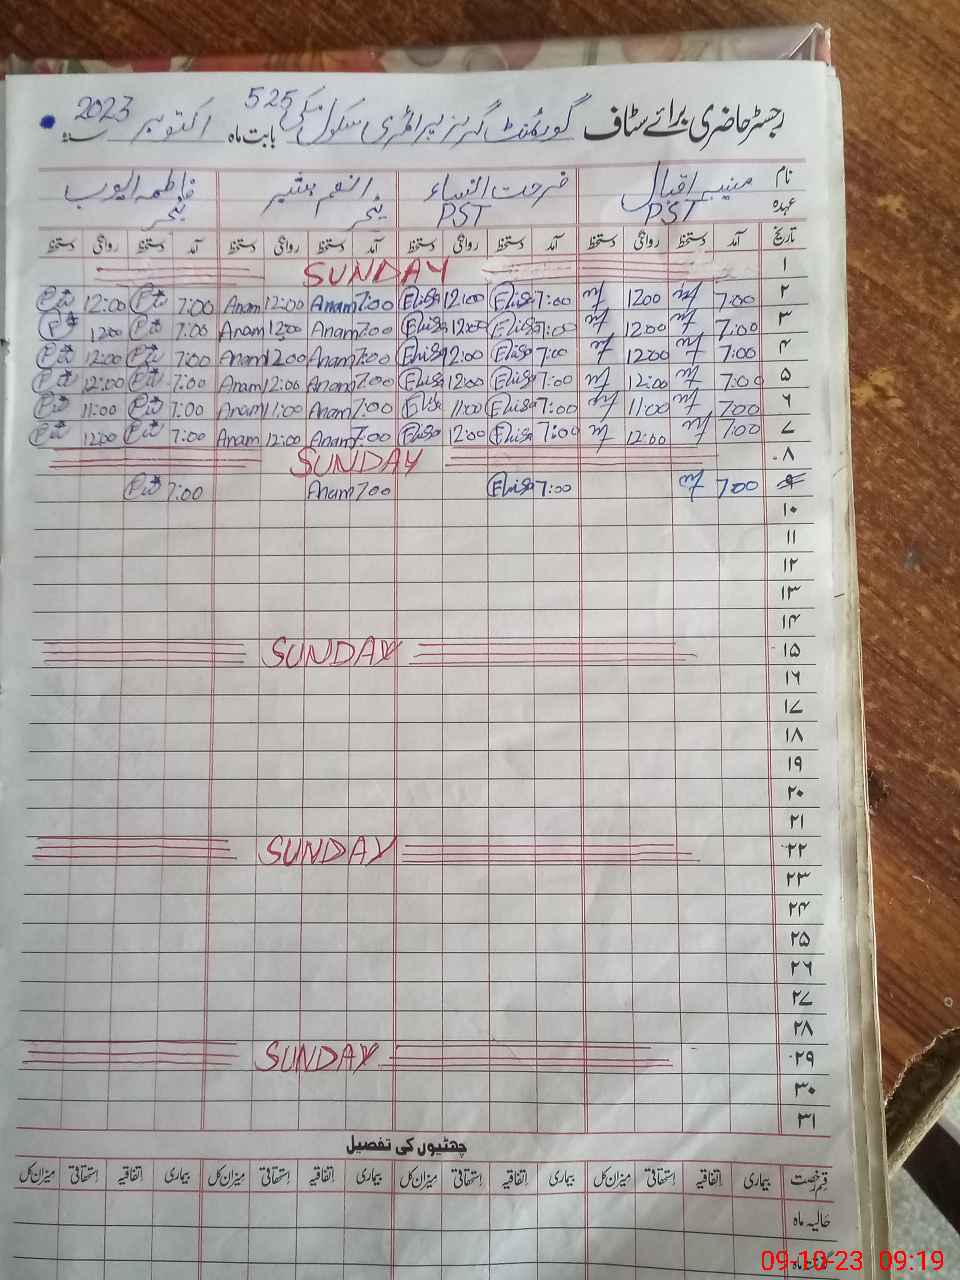 رجسٹر حاضری برائے سٹاف گورنمنٹ گرلز پرائمری سکول 525 بابت ماہ اکتوبر 2023
نام منیبہ اقبال فرحت النساء انعم بشیر فاطمہ ایوب
عہدہ PST PST ٹیچر ٹیچر
تاریخ آمد دستخط روانگی دستخط آمد دستخط روانگی دستخط آمد دستخط روانگی دستخط آمد دستخط روانگی دستخط
۱ SUNDAY
۲ 7:00 m 12:00 m 7:00 Elisa 12:00 Elisa 7:00 Anam 12:00 Anam 7:00 12:00
۳ 7:00 m 12:00 m 7:00 Elisa 12:00 Elisa 7:00 Anam 12:00 Anam 7:00 12:00
۴ 7:00 m 12:00 m 7:00 Elisa 12:00 Elisa 7:00 Anam 12:00 Anam 7:00 12:00
۵ 7:00 m 12:00 m 7:00 Elisa 12:00 Elisa 7:00 Anam 12:00 Anam 7:00 12:00
۶ 7:00 m 11:00 m 7:00 Elisa 11:00 Elisa 7:00 Anam 11:00 Anam 7:00 11:00
۷ 7:00 m 12:00 m 7:00 Elisa 12:00 Elisa 7:00 Anam 12:00 Anam 7:00 12:00
۸ SUNDAY
۹ 7:00 m 7:00 Elisa 7:00 Anam 7:00
۱۰
۱۱
۱۲
۱۳
۱۴
۱۵ SUNDAY
۱۶
۱۷
۱۸
۱۹
۲۰
۲۱
۲۲ SUNDAY
۲۳
۲۴
۲۵
۲۶
۲۷
۲۸
۲۹ SUNDAY
۳۰
۳۱
چھٹیوں کی تفصیل
قسم رخصت بیماری اتفاقیہ استحقاقی میزان کل بیماری اتفاقیہ استحقاقی میزان کل بیماری اتفاقیہ استحقاقی میزان کل بیماری اتفاقیہ استحقاقی میزان کل
حالیہ ماہ
09-10-23 09:19